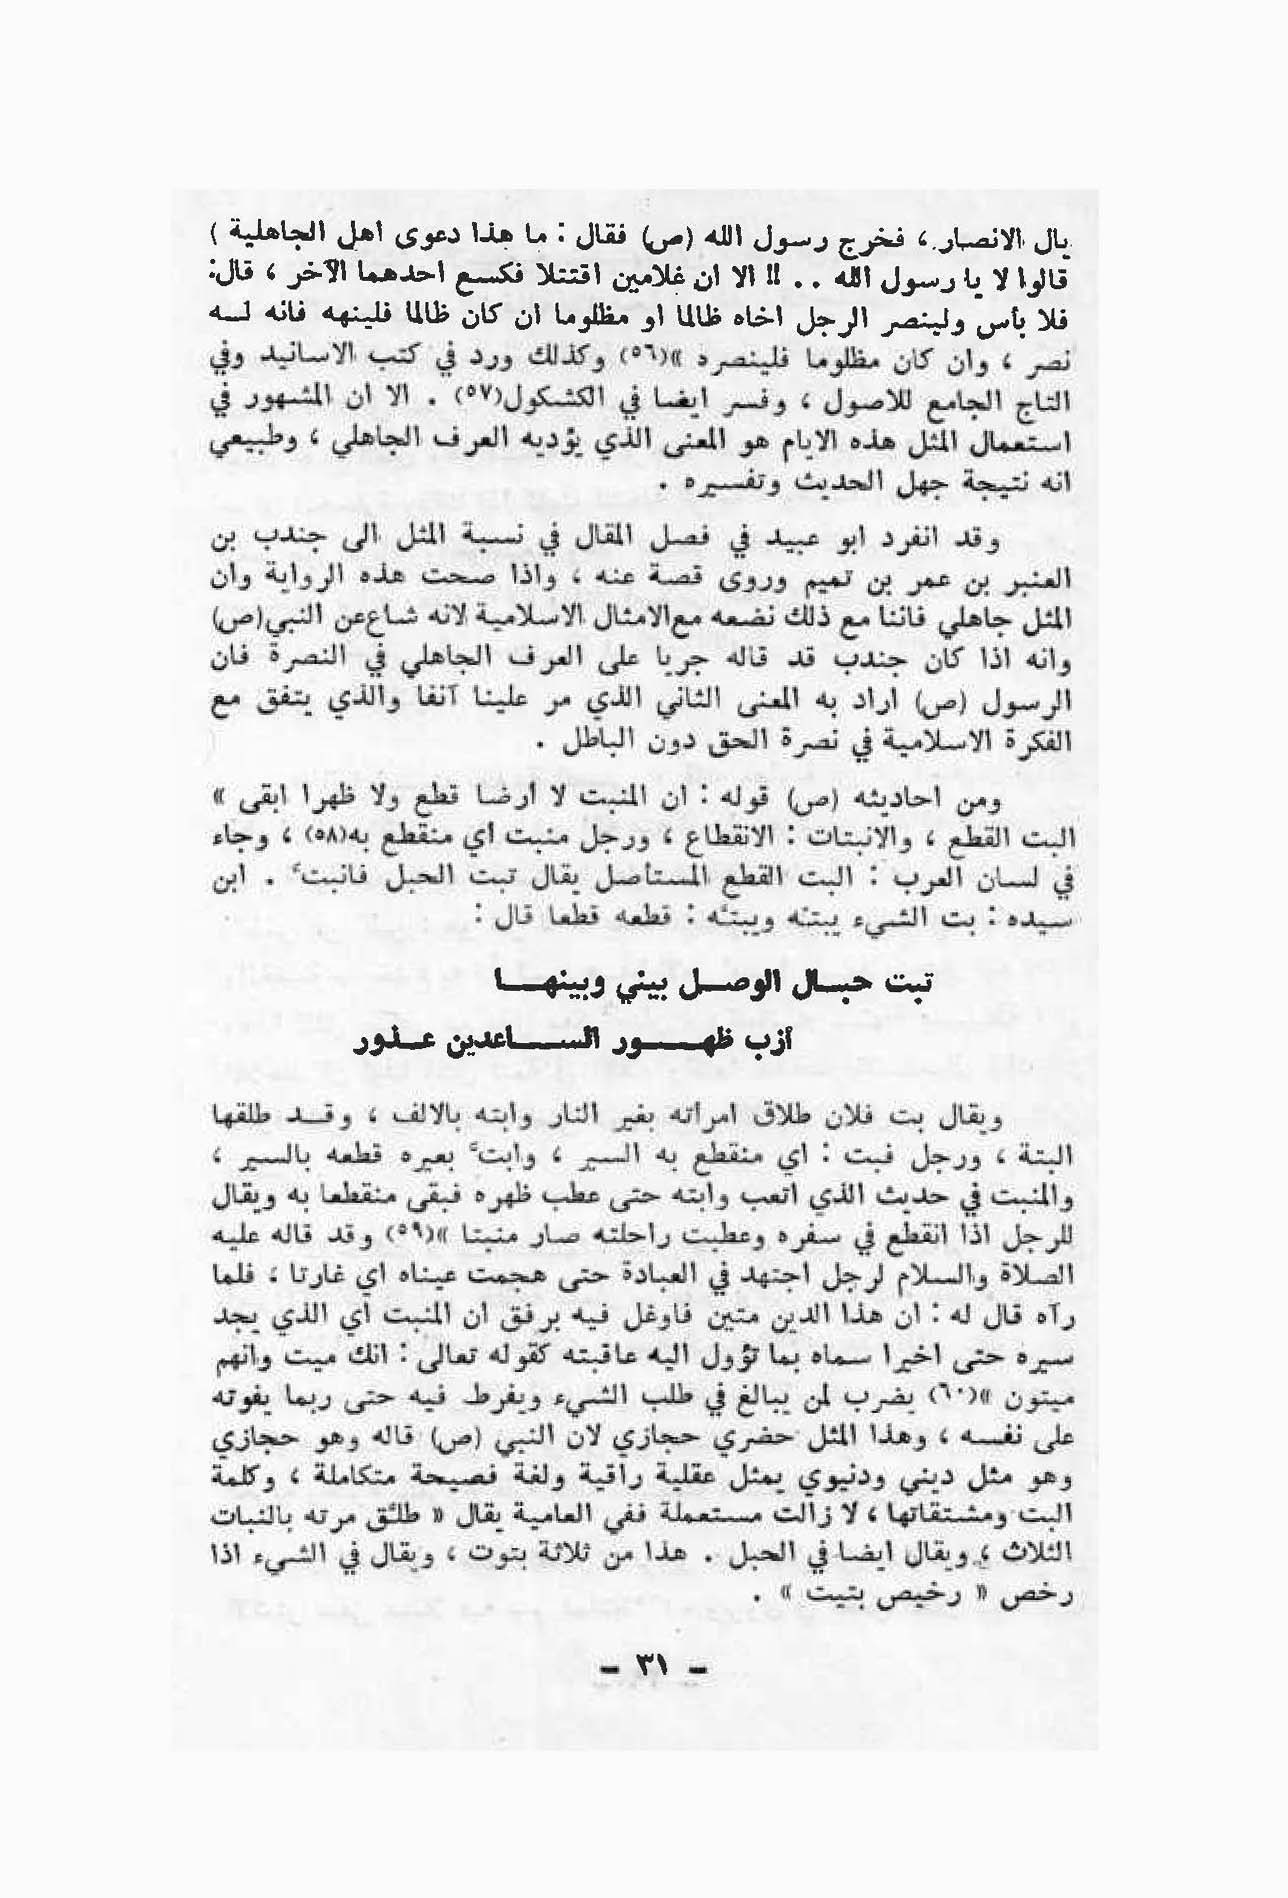 يال الانصار ، فخرج رسول الله (ص) فقال : ما هذا دعوى اهل الجاهلية )
قالوا لا يا رسول الله .. !! الا ان غلامين اقتتلا فكسع احدهما الآخر ، قال:
فلا بأس ولينصر الرجل اخاه ظالما او مظلوما ان كان ظالما فلينهه فانه لــه
نصر ، وان كان مظلوما فلينصره »(٥٦) وكذلك ورد في كتب الاسانيد وفي
التاج الجامع للاصول ، وفسر ايضا في الكشكول(٥٧) . الا ان المشهور في
استعمال المثل هذه الايام هو المعنى الذي يؤديه العرف الجاهلي ، وطبيعي
انه نتيجة جهل الحديث وتفسيره .
وقد انفرد ابو عبيد في فصل المقال في نسبة المثل الى جندب بن
العنبر بن عمر بن تميم وروى قصة عنه ، واذا صحت هذه الرواية وان
المثل جاهلي فاننا مع ذلك نضعه مع الامثال الاسلامية لانه شاع عن النبي(ص)
وانه اذا كان جندب قد قاله جريا على العرف الجاهلي في النصرة فان
الرسول (ص) اراد به المعنى الثاني الذي مر علينا آنفا والذي يتفق مع
الفكرة الاسلامية في نصرة الحق دون الباطل .
ومن احاديثه (ص) قوله : ان المنبت لا أرضا قطع ولا ظهرا ابقى »
البت القطع ، والانبتات : الانقطاع ، ورجل منبت أي منقطع به(٥٨) ، وجاء
في لسان العرب : البت القطع المستأصل يقال تبت الحبل فانبت . ابن
سيده : بت الشيء يبتّه ويبتّه : قطعه قطعا قال :
تبت حبــال الوصــل بيني وبينهــــا
أزب ظهــــور الســـاعدين عــذور
ويقال بت فلان طلاق امراته بغير النار وابته بالالف ، وقــد طلقها
البتة ، ورجل فبت : اي منقطع به السير ، وابتّ بعيره قطعه بالسير ،
والمنبت في حديث الذي اتعب وابته حتى عطب ظهره فبقى منقطعا به ويقال
للرجل اذا انقطع في سفره وعطبت راحلته صار منبتا »(٥٩) وقد قاله عليه
الصلاة والسلام لرجل اجتهد في العبادة حتى هجمت عيناه اي غارتا ؛ فلما
رآه قال له : ان هذا الدين متين فاوغل فيه برفق ان المنبت أي الذي يجد
سيره حتى اخيرا سماه بما تؤول اليه عاقبته كقوله تعالى : انك ميت وانهم
ميتون »(٦٠) يضرب لمن يبالغ في طلب الشيء ويفرط فيه حتى ربما يفوته
على نفسه ، وهذا المثل حضري حجازي لان النبي (ص) قاله وهو حجازي
وهو مثل ديني ودنيوي يمثل عقلية راقية ولغة فصيحة متكاملة ، وكلمة
البت ومشتقاتها ، لا زالت مستعملة ففي العامية يقال « طلّق مرته بالنبات
الثلاث ؛ ويقال ايضا في الحبل . هذا من ثلاثة بتوت ، ويقال في الشيء اذا
رخص « رخيص بتيت » .
– ٣١ –